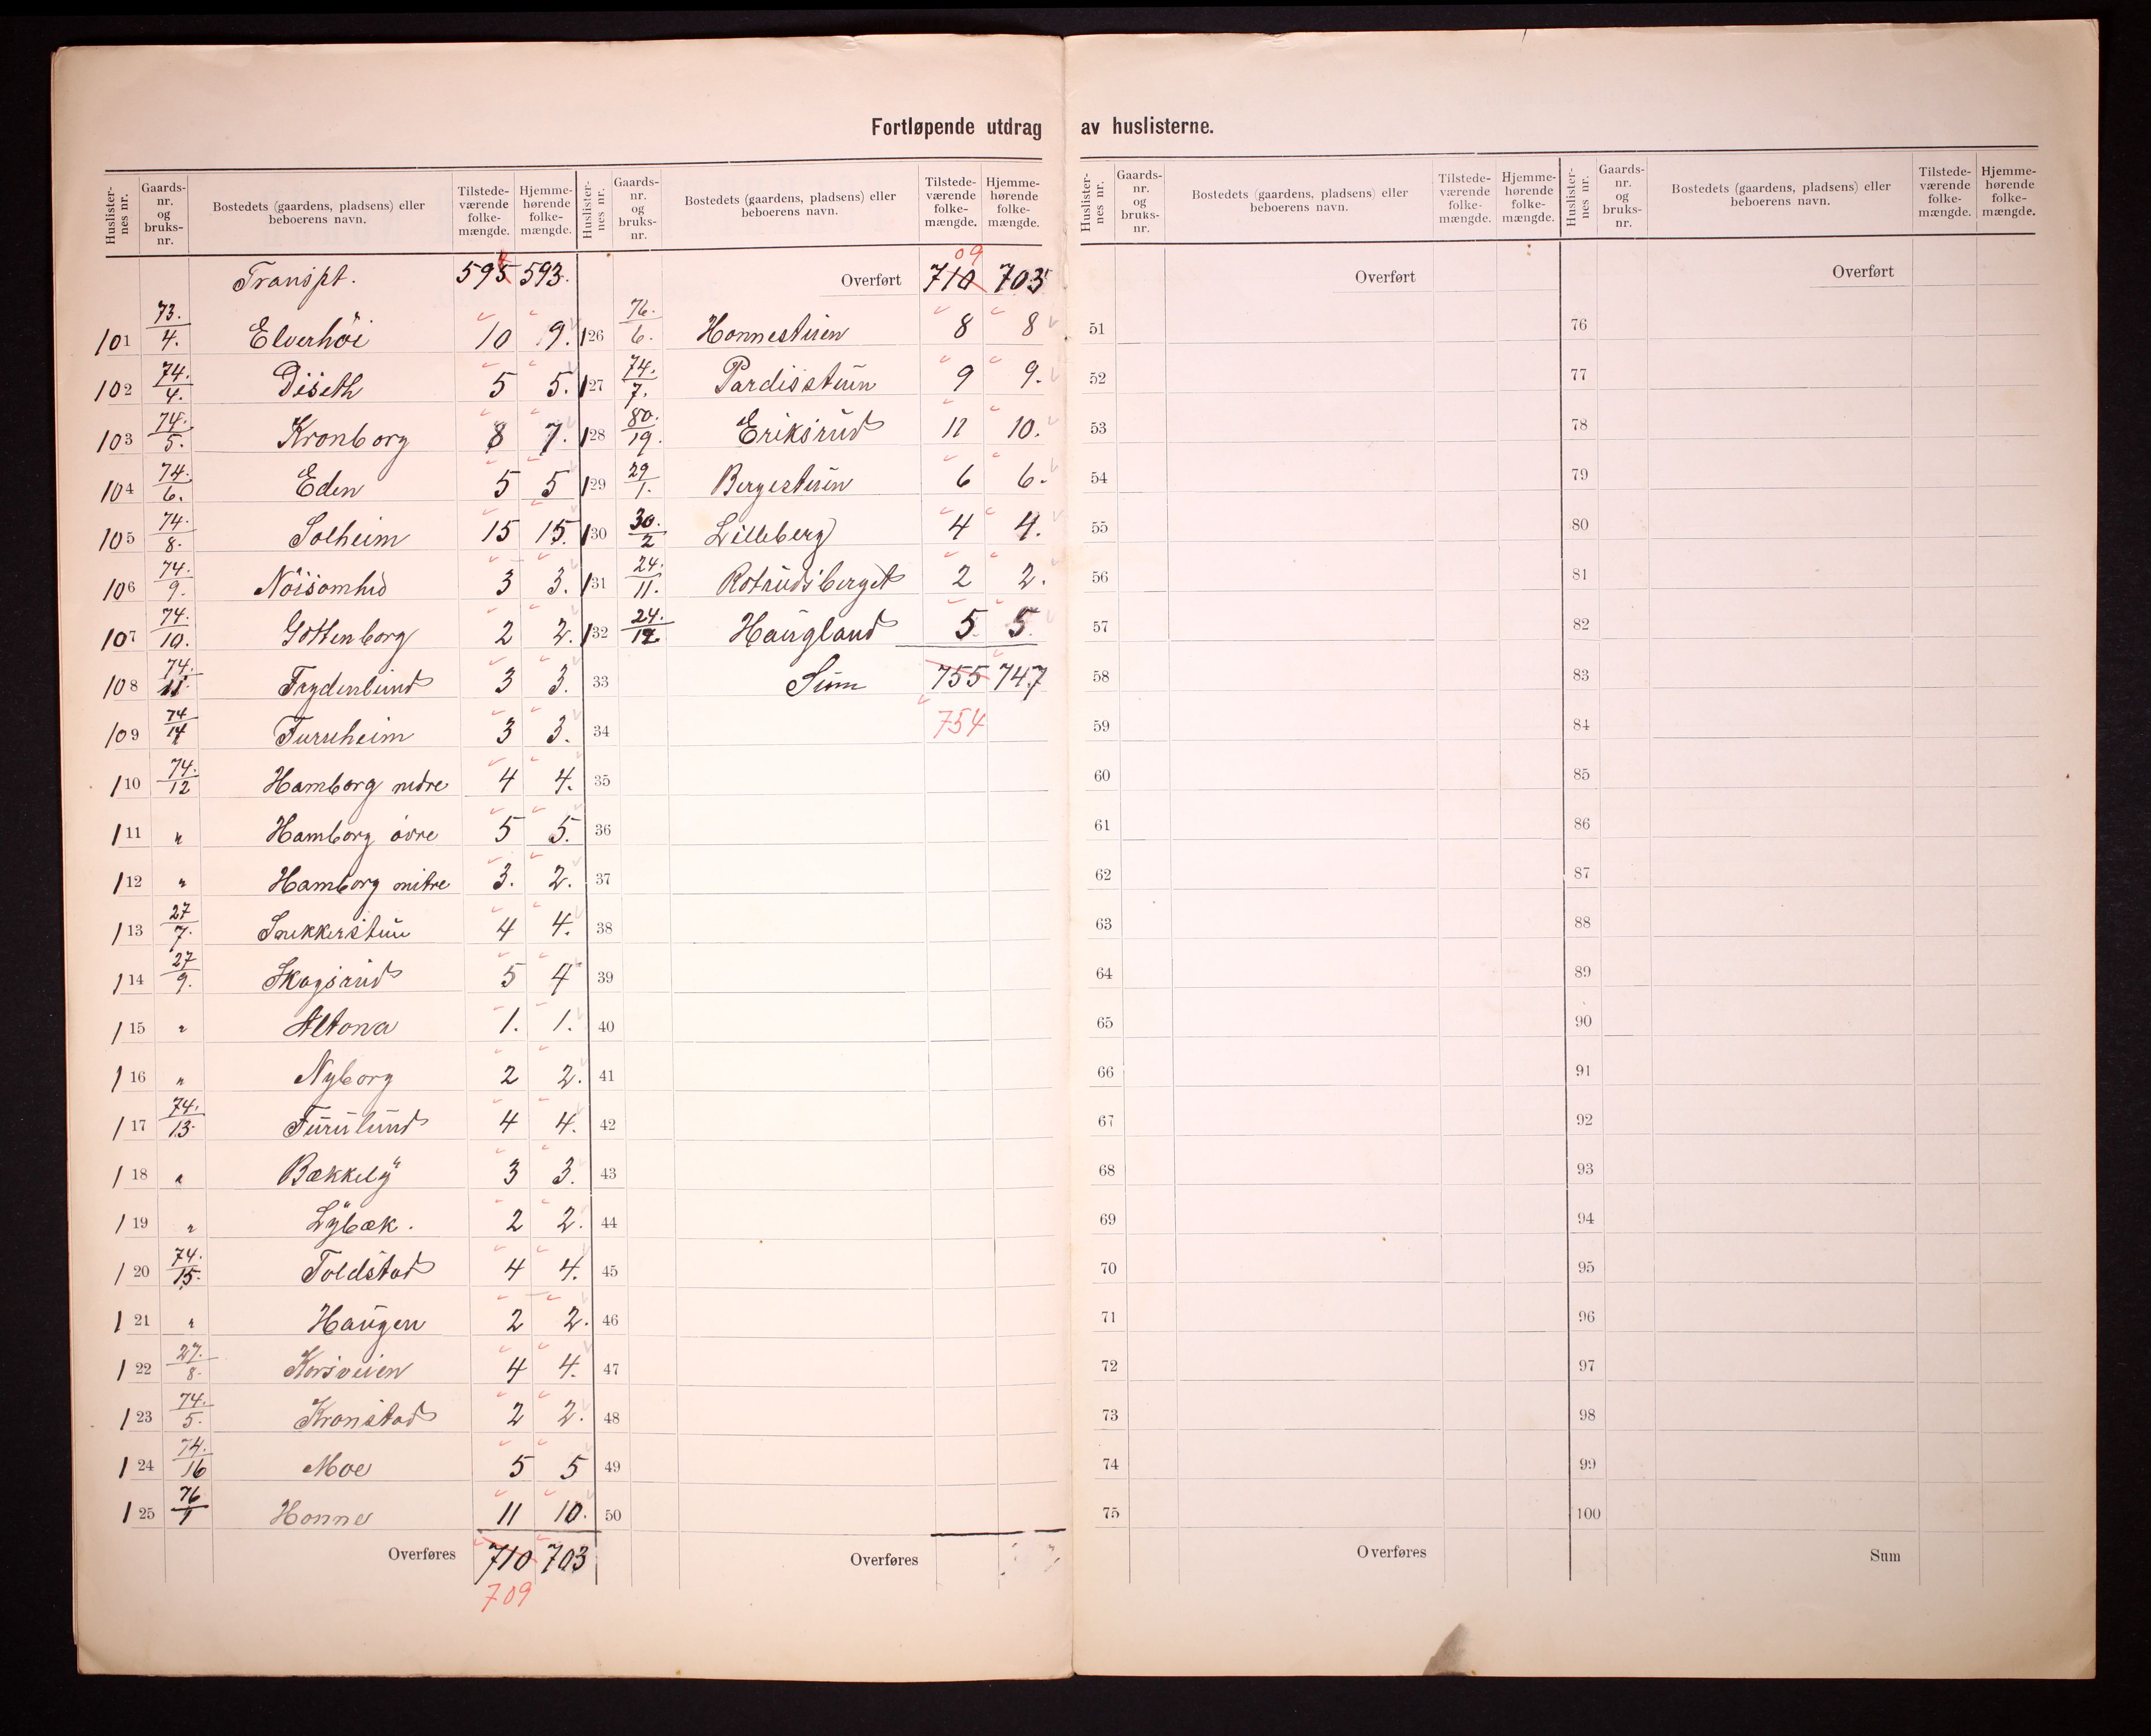 Fortløpende utdrag av huslisterne.
Huslisternes nr. Gaards-nr. og bruks-nr. Bostedets (gaardens, pladsens) eller beboerens navn. Tilstede-værende folke-mængde. Hjemme-hørende folke-mængde.
Transpt. 595 4 593.
101 73./4. Elverhöi 10 9.
102 74./4. Diseth 5 5.
103 74./5. Kronborg 8 7.
104 74./6. Eden 5 5
105 74./8. Solheim 15 15.
106 74./9. Nöisomhed 3 3.
107 74./10. Gottenborg 2 2.
108 74./11. Frydenlund 3 3.
109 74/14 Furuheim 3 3.
110 74./12 Hamborg nedre 4 4.
111 " Hamborg övre 5 5.
112 " Hamborg mitre 3. 2.
113 27/7. Snekkerstuen 4 4.
114 27/9. Skogsrud 5 4
115 " Altona 1. 1.
116 " Nyborg 2 2.
117 74./13. Furulund 4 4.
118 " Bækkely 3 3.
119 " Lybæk. 2 2.
120 74./15. Toldstad 4 4.
121 " Haugen 2 2.
122 27./8. Korsveien 4 4.
123 74./5. Kronstad 2 2.
124 74./16 Moe 5 5
125 76/1 Honne 11 10.
Overføres 710 703
709
Huslisternes nr. Gaards-nr. og bruks-nr. Bostedets (gaardens, pladsens) eller beboerens navn. Tilstede-værende folke-mængde. Hjemme-hørende folke-mængde.
09
Overført 710 703
126 76./6. Honnestuen 8 8
127 74./7. Pardisstuen 9 9.
128 80./19. Eriksrud 11 10.
129 29/1. Bergestuen 6 6.
130 30./2 Lilleberg 4 4.
131 24./11. Rotnudsberget 2 2.
132 24./12 Haugland 5. 5.
33 Sum 755 747
34 754
35
36
37
38
39
40
41
42
43
44
45
46
47
48
49
50
Overføres
Huslister-nes nr. Gaards-nr. og bruks-nr. Bostedets (gaardens, pladsens) eller beboerens navn. Tilstede-værende folke-mængde. Hjemme-hørende folke-mængde.
Overført
51
52
53
54
55
56
57
58
59
60
61
62
63
64
65
66
67
68
69
70
71
72
73
74
75
Overføres
Huslister-nes nr. Gaards-nr. og bruks-nr. Bostedets (gaardens, pladsens) eller beboerens navn. Tilstede-værende folke-mængde. Hjemme-hørende folke-mængde.
Overført
76
77
78
79
80
81
82
83
84
85
86
87
88
89
90
91
92
93
94
95
96
97
98
99
100
Sum